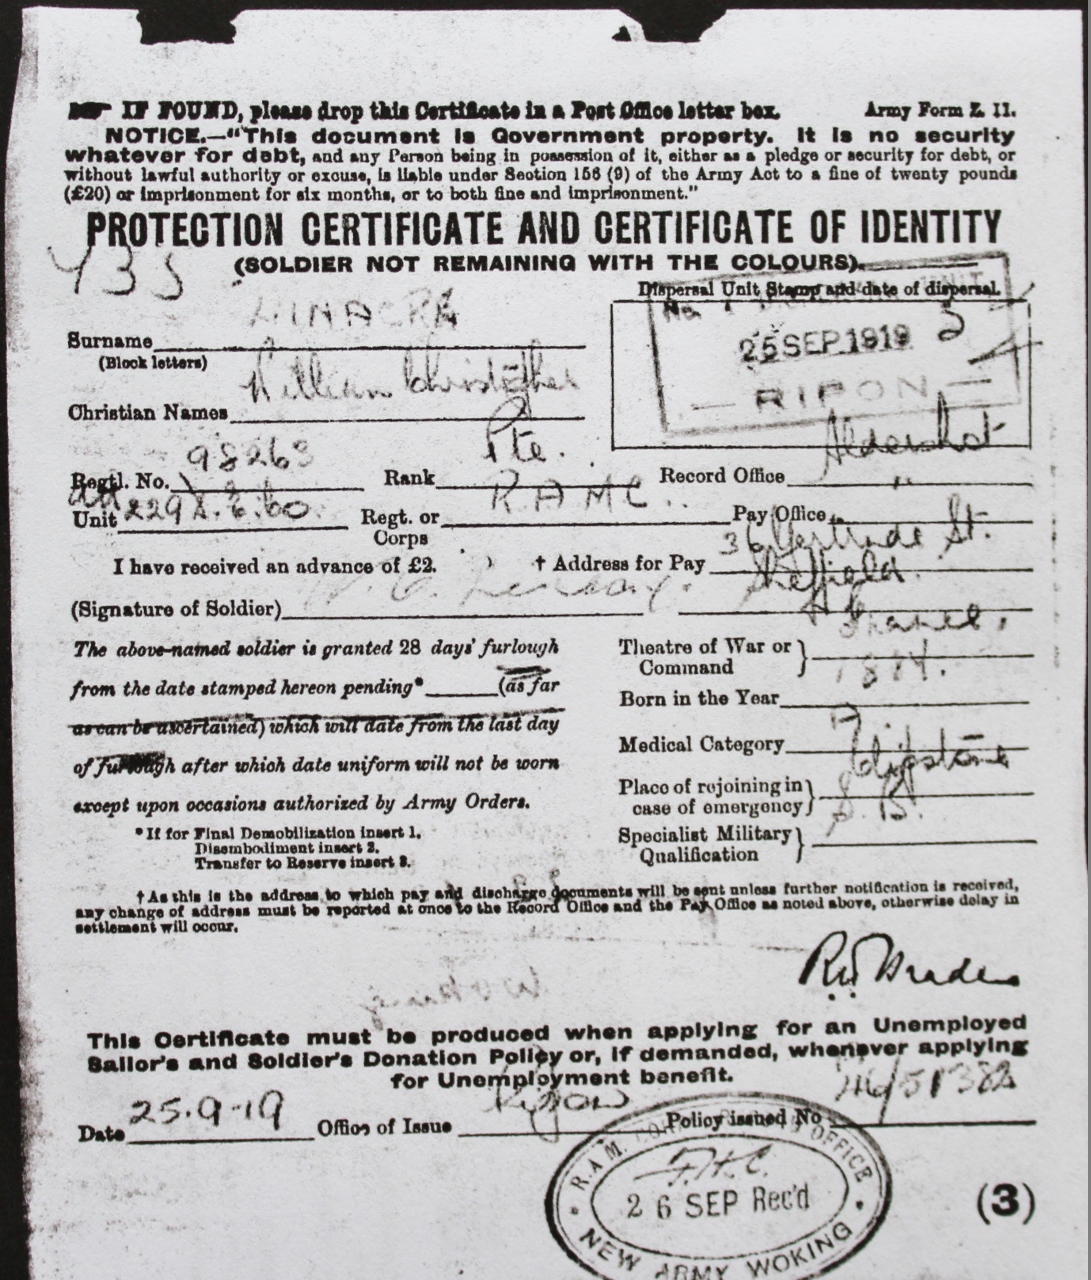 IF FOUND, please drop this Certificate in a Post Office letter box. Army Form Z. 11.
NOTICE.—"This document is Government property. It is no security
whatever for debt, and any Person being in possession of it, either as a pledge or security for debt, or
without lawful authority or excuse, is liable under Section 156 (9) of the Army Act to a fine of twenty pounds
(£20) or imprisonment for six months, or to both fine and imprisonment."
PROTECTION CERTIFICATE AND CERTIFICATE OF IDENTITY
(SOLDIER NOT REMAINING WITH THE COLOURS).
Dispersal Unit Stamp and date of dispersal.
25 SEP 1919
RIPON
Surname LINACRE
(Block letters)
Christian Names William Christopher
Regtl. No. 98263 Rank Pte. Record Office Aldershot
Unit Regt. or Corps R.A.M.C. Pay Office "
I have received an advance of £2. † Address for Pay 36 Gertrude St.
Sheffield.
(Signature of Soldier)
The above-named soldier is granted 28 days' furlough
from the date stamped hereon pending* (as far
as can be ascertained) which will date from the last day
of furlough after which date uniform will not be worn
except upon occasions authorized by Army Orders.
*If for Final Demobilization insert 1.
Disembodiment insert 2.
Transfer to Reserve insert 3.
Theatre of War or Command France.
Born in the Year
Medical Category A
Place of rejoining in case of emergency Clipstone
Specialist Military Qualification
†As this is the address to which pay and discharge documents will be sent unless further notification is received,
any change of address must be reported at once to the Record Office and the Pay Office as noted above, otherwise delay in
settlement will occur.
This Certificate must be produced when applying for an Unemployed
Sailor's and Soldier's Donation Policy or, if demanded, whenever applying
for Unemployment benefit.
Date 25.9.19 Office of Issue Ripon Policy issued No
R.A.M. OFFICE
26 SEP Rec'd
NEW ARMY WOKING
(3)